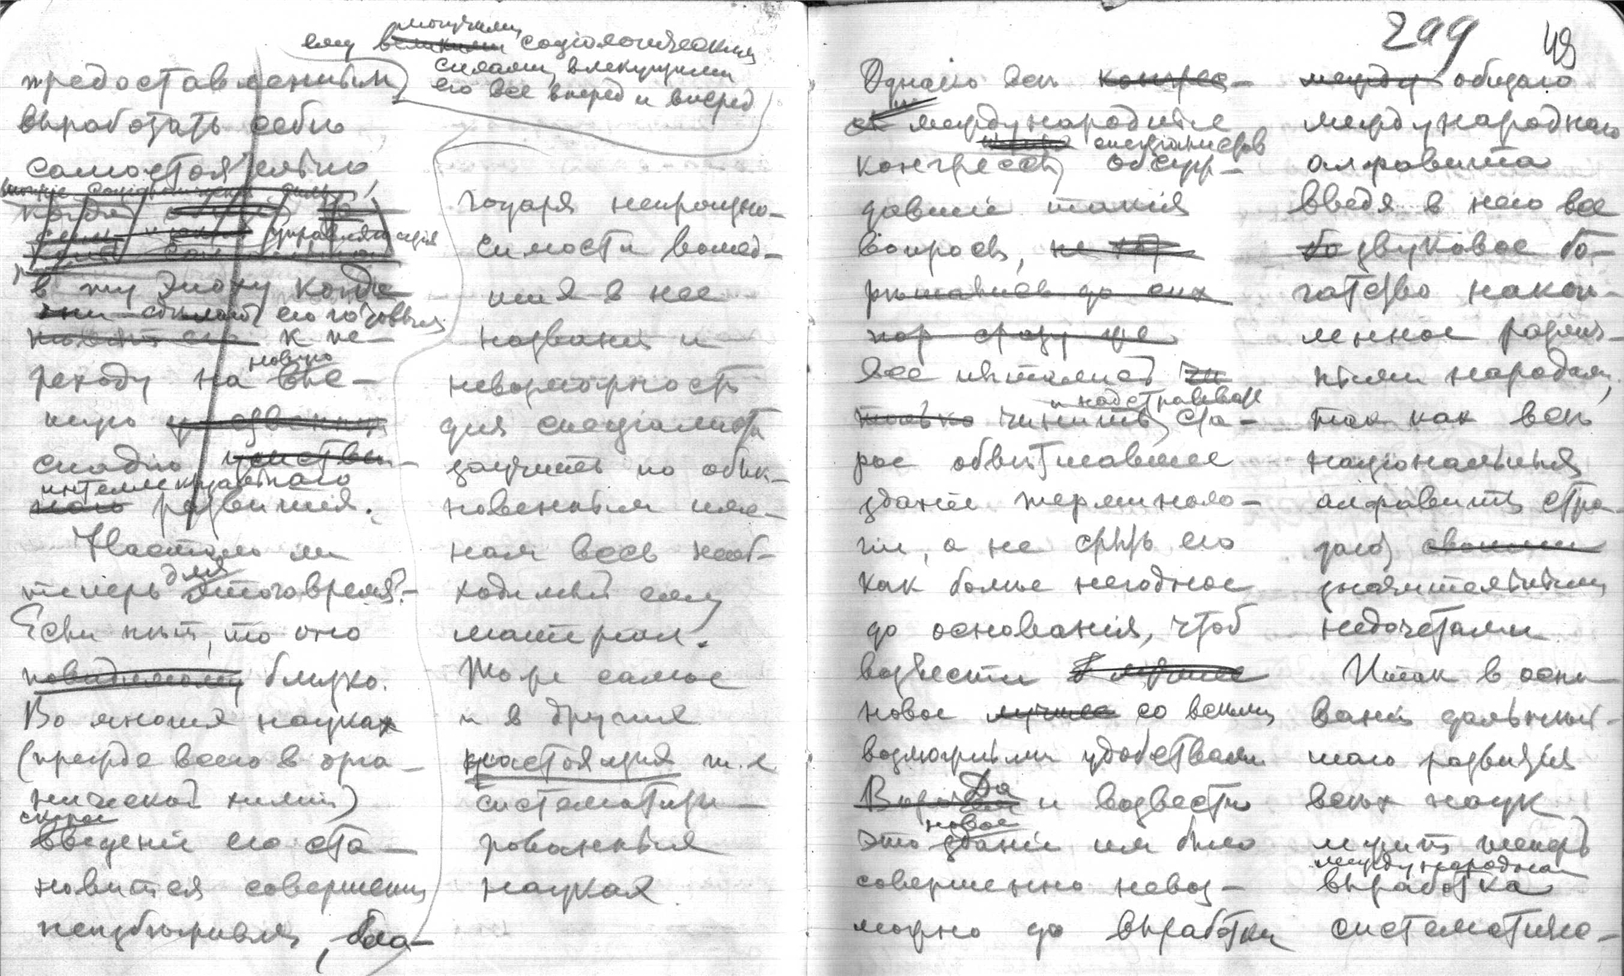 могучими
ему великими содіологическими
силами, влекущими
его все вперед и вперед
предоставленным
выработать себе
самостоятельно
когда
в ту эпоху когда
его готовым
к пе-
реходу на новую выс-
шую
стадію умствен-
интеллектуальнаго
наго развитія.
Настало ли
теперь для этого время?-
Если нет, то оно
повидимому близко.
Во многих науках
(прежде всего в орга-
нической химіи)
скорое
введеніе его ста-
новится совершенно
неизбежным, бла-
годаря непроизно-
симости вошед-
ших в нее
названий и
невозможности
для спеціалиста
заучить по обык-
новенным име-
нам весь необ-
ходимый ему
матеріал.
То же самое
и в других
настоящих т. е.
систематизи-
рованных
науках.
299
49
Однако все конгрес-
международные
спеціалистов
конгрессы, обсуж-
давшіе такія
вопросы,
решавшіе до сих
пор сразу же
все пытались
и надстраивать
только чинить, ста-
рое обветшавшее
зданіе терминоло-
гіи, а не срыть его
как более негодное
до основанія, чтоб
возвести
новое лучшее со всеми
возможными удобствами.
Да и возвести
новое
это зданіе им было
совершенно невоз-
можно до выработки
между общаго
международнаго
алфавита
введя в него все
звуковое бо-
гатство накоп-
ленное различ-
ными народами,
так как все
національные
алфавиты стра-
дают своими
значительными
недочетами.
Итак в осно-
ваніи дальней-
шаго развитія
всех наук
лежит теперь
международная
выработка
систематиче-